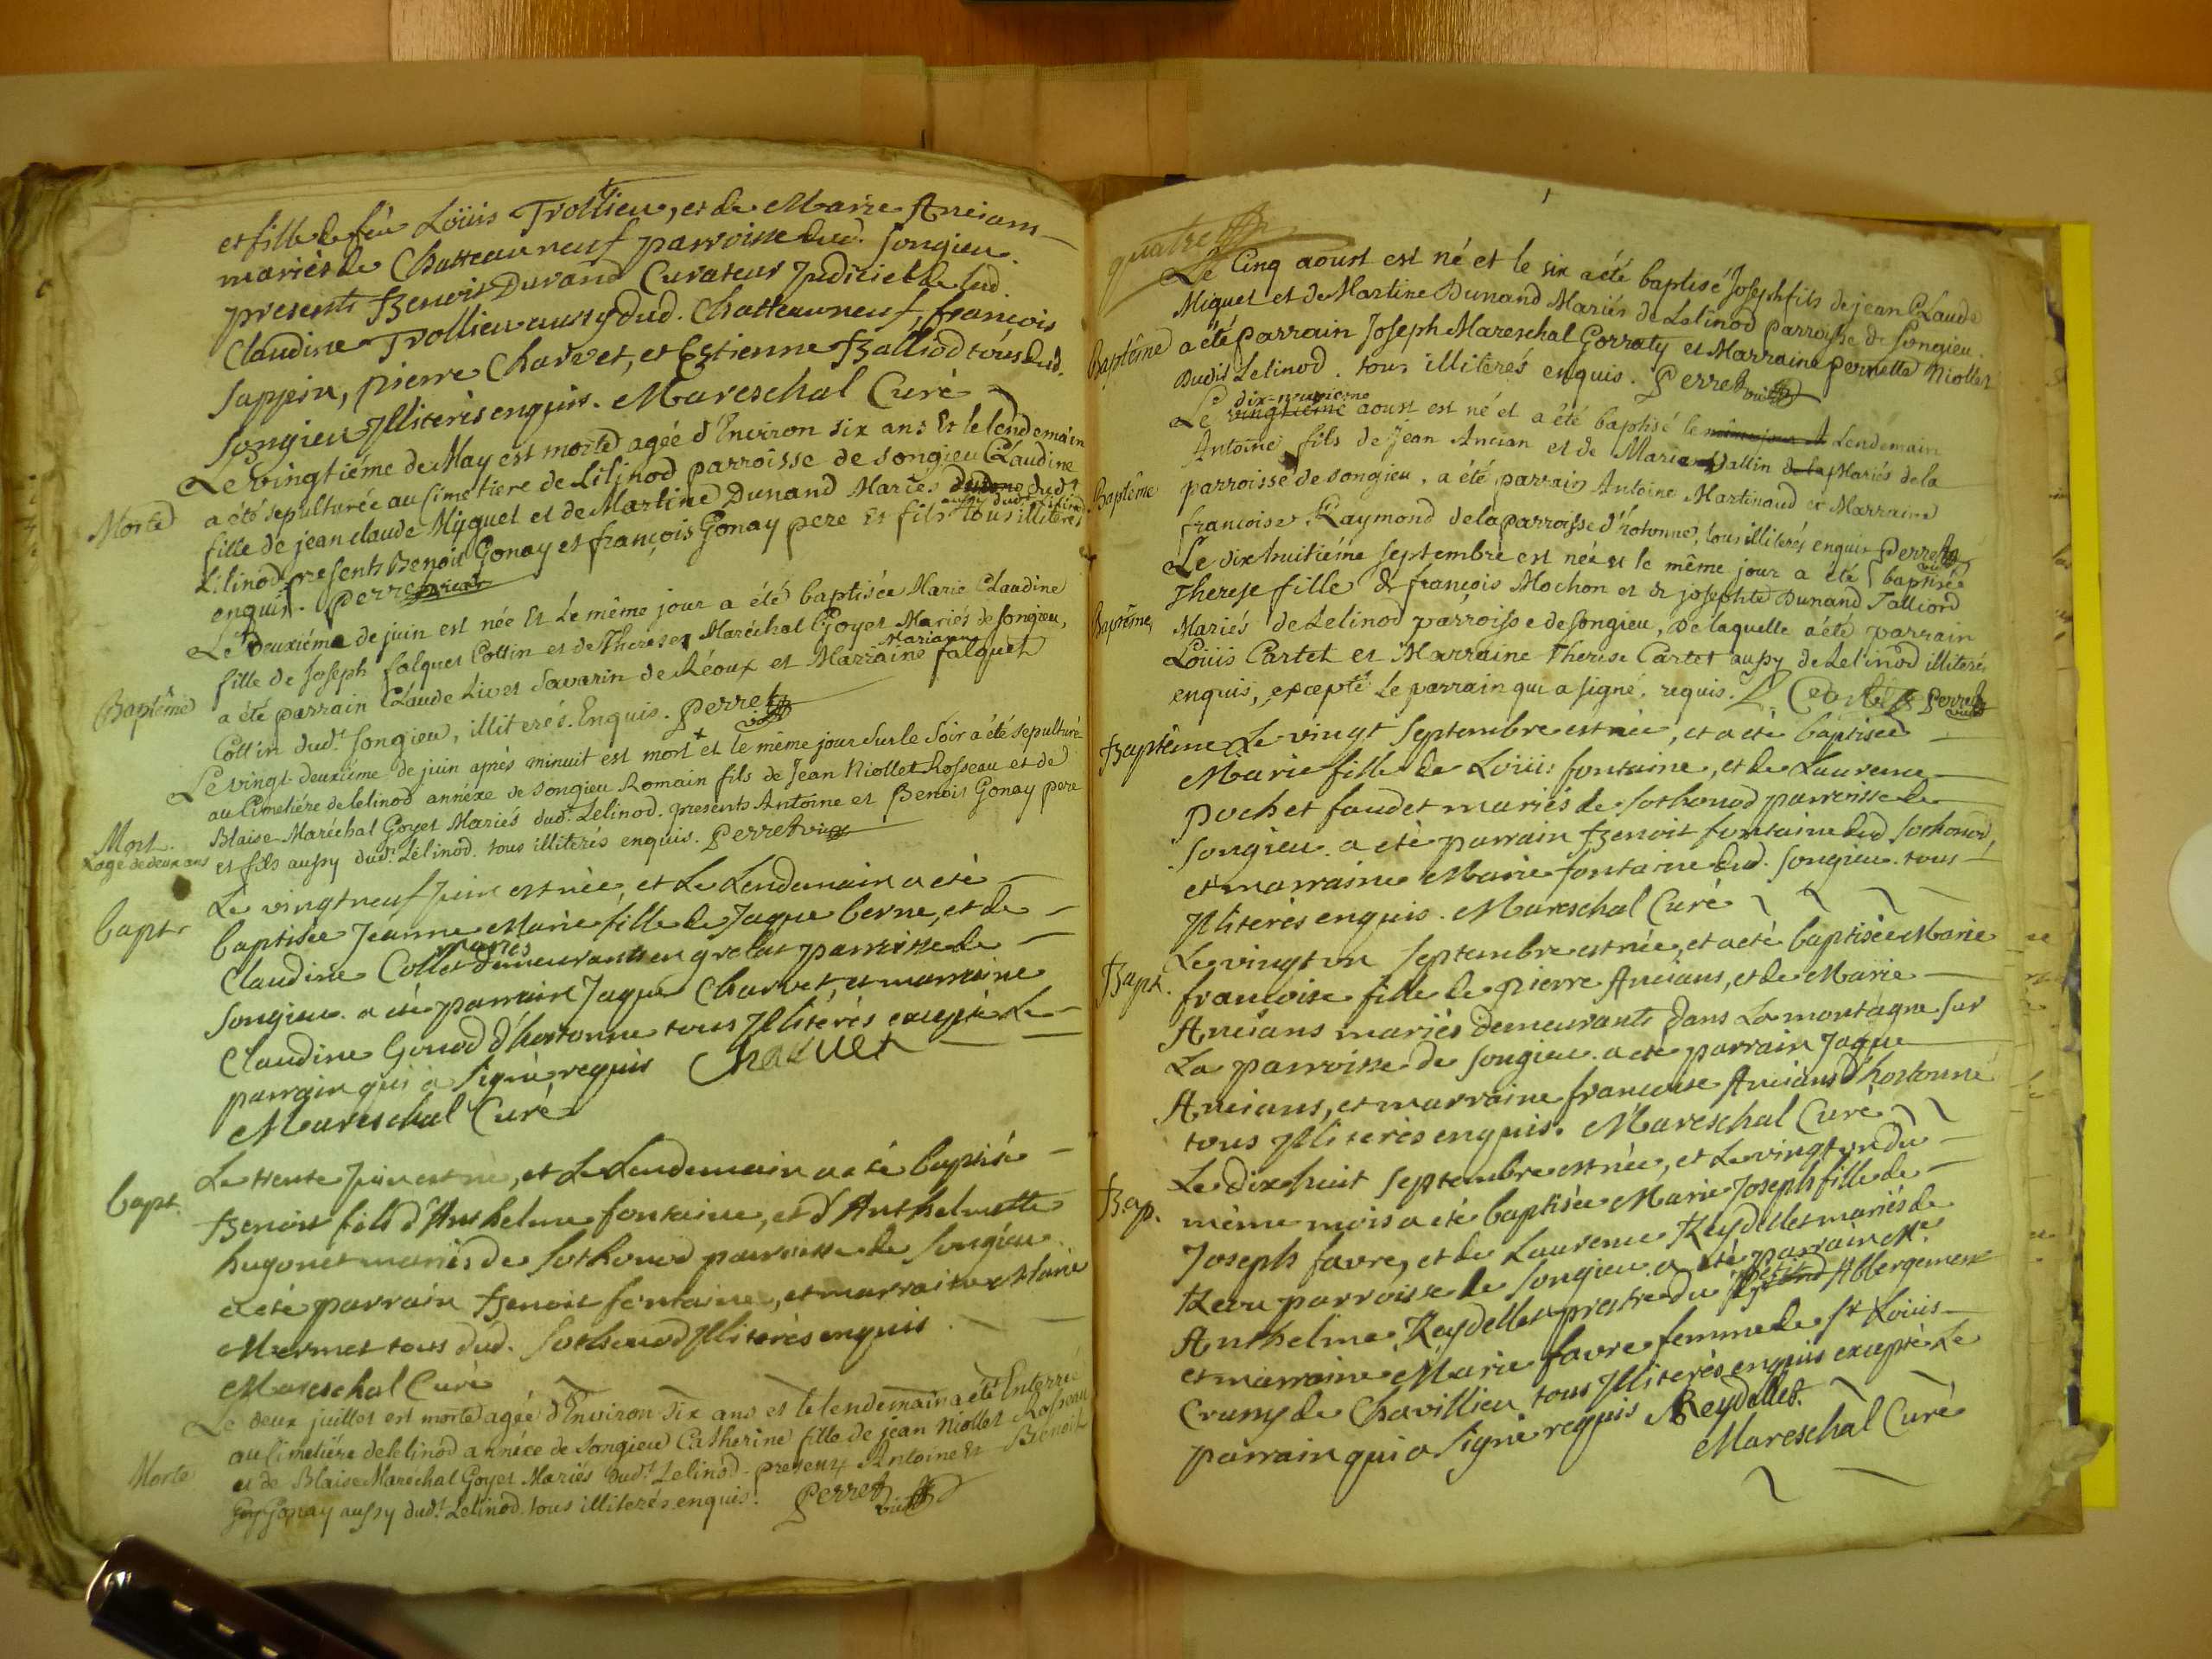 et fille de feu Loüis Trollieu, et de Marie Ancians
mariés de Chatteauneuf parroisse dud. Songieu.
presents Benoit Durand Curateur Judiciel de lad.
Claudine Trollieu aussy dud. Chatteauneuf, françois
Sappin, pierre Charvet, et Estienne Balliod tous dud.
Songieu Illiterés enquis. Mareschal Curé
Le vingtiéme de May est morte agée d'Environ six ans Et le lendemain
Morte
a été sepulturée au Cimetiere de Lilinod parroisse de Songieu Claudine
fille de jean claude Miguet et de Martine Dunand Mariés dud.t
aussy dud.t Lilinod
Lilinod presents Benoit Gonay et françois Gonay pere Et fils tous illiterés
enquis. Perret vic.
Le Deuxiéme de juin est née Et Le même jour a été baptisée Marie Claudine
fille de Joseph falquet Cottin et de Therese Maréchal Goyet Mariés de Songieu,
Marianne
Baptême a été parrain Claude Livet Savarin de Réoux et Marraine falquet
Cottin dud.t Songieu, illiterés. Enquis. Perret vic.
Le vingt-deuxiéme de juin aprés minuit est mort + et le même jour Sur le Soir a été sepulturé
au Cimetiére de lelinod annéxe de Songieu Romain fils de Jean Niollet Rosseau et de
Mort. Blaise Maréchal Goyet Mariés dud.t Lelinod. presents Antoine et Benoit Gonay pere
+ agé de deux ans et fils aussy dud.t Lelinod. tous illiterés enquis. Perret vic.
Le vingtneuf Juin est née, et Le Lendemain a eté
bapt. baptisée Jeanne Marie fille de Jaque berne, et de
mariés
Claudine Collet demeurants en grelat parroisse de
Songieu. a eté parrain Jaque Charvet, et marraine
Claudine Gonod d'hostonne tous Illiterés excepté Le
parrain qui a Signé requis Charvet
Mareschal Curé
Le trente Juin est né, et Le Lendemain a eté baptisé
bapt. Benoit fils d'Anthelme fontaine, et d'Anthelmette
hugonet mariés de Sothonod parroisse de Songieu.
a eté parrain Benoit fontaine, et marraine Marie
Mermet tous dud. Sothonod Illiterés enquis
Mareschal Curé
Le deux juillet est morte agée d'Environ Six ans et le lendemain a été Enterrée
au Cimetiére de lelinod annéxe de Songieu Catherine fille de jean Niollet Rosseau
Morte et de Blaise Marechal Goyet Mariés dud.t Lelinod. present Antoine Et Benoit
Gonay aussy dud.t Lelinod. tous illiterés enquis. Perret vic.
quatre
Le Cinq aoust est né et le six a été baptisé Joseph fils de jean Claude
Miguet et de Martine Dunand Mariés de Lelinod Parroisse de Songieu.
Baptême a été parrain Joseph Mareschal Gorraty et Marraine Pernette Niollet
Dudit Lelinod. tous illiterés enquis. Perret vic.
dix-neuvieme
Le vingtieme aoust est né et a été baptisé le même jour Lendemain
Antoine fils de jean Ancian et de Marie Vallin de la Mariés de la
Baptême parroisse de Songieu, a été parrain Antoine Martinaud et Marraine
françoise Raymond de la parroisse d'hotonne, tous illiterés enquis Perret vic.
Le dix huitiéme septembre est née et le même jour a été baptisée
Therese fille de françois Mochon et de josephte Dunand Talliord
Baptême Mariés de Lelinod parroisse de Songieu, De laquelle a été parrain
Loüis Cartet et Marraine Therese Cartet aussy de Lelinod illiterés
enquis, excepté Le parrain qui a signé. requis. L. Cartet Perret vic.
Baptême Le vingt Septembre est née, et a eté baptisée
Marie fille de Loüis fontaine, et de Laurence
Pochet faudet mariés de Sothonod parroisse de
Songieu. a eté parrain Benoit fontaine dud. Sothonod,
et marraine Marie fontaine dud. Songieu. tous
Illiterés enquis. Mareschal Curé
Le vingt un Septembre est née, et a eté baptisée Marie
Bapt. francoise fille de pierre Ancians, et de Marie
Ancians mariés demeurants dans La montagne sur
La parroisse de Songieu. a eté parrain Jaque
Ancians, et marraine francoise Ancians d'hostonne
tous Illiterés enquis. Mareschal Curé
Le dixhuit Septembre est née, et Le vingt un du
Bap. même mois a eté baptisée Marie Joseph fille de
Joseph favre, et de Laurence Reydellet mariés de
Reou parroisse de Songieu. a eté parrain M.re
Anthelme Reydellet prestre du petit Abbergement
et marraine Marie favre femme de S.r Loüis
Crumy de Chavillieu tous Illiterés enquis excepté Le
parrain qui a Signé requis Reydellet.
Mareschal Curé